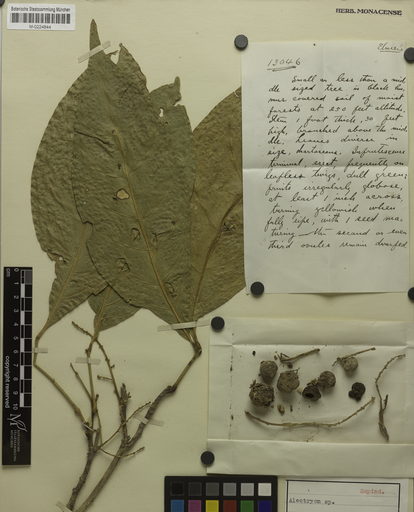 Botanische Staatssammlung München
M-0224944
HERB. MONACENSE
13046
Small or less than a mid
dle sized tree in black hu,
mus covered soil of moist
forests at 250 feet altitude.
Stem 1 foot thick, 30 feet
high, branched above the mid
dle, leaves diverse in
size, chartaceous, Infrutescence
terminal, erect, frequently on
leafless twigs, dull green;
fruits irregularly globose,
at least 1 inch across,
turning yellowish when
fully ripe, with 1 seed ma,
turing - the second or even
third ovules remain dwarfed
copyright reserved
Sapind.
Alectryon sp.